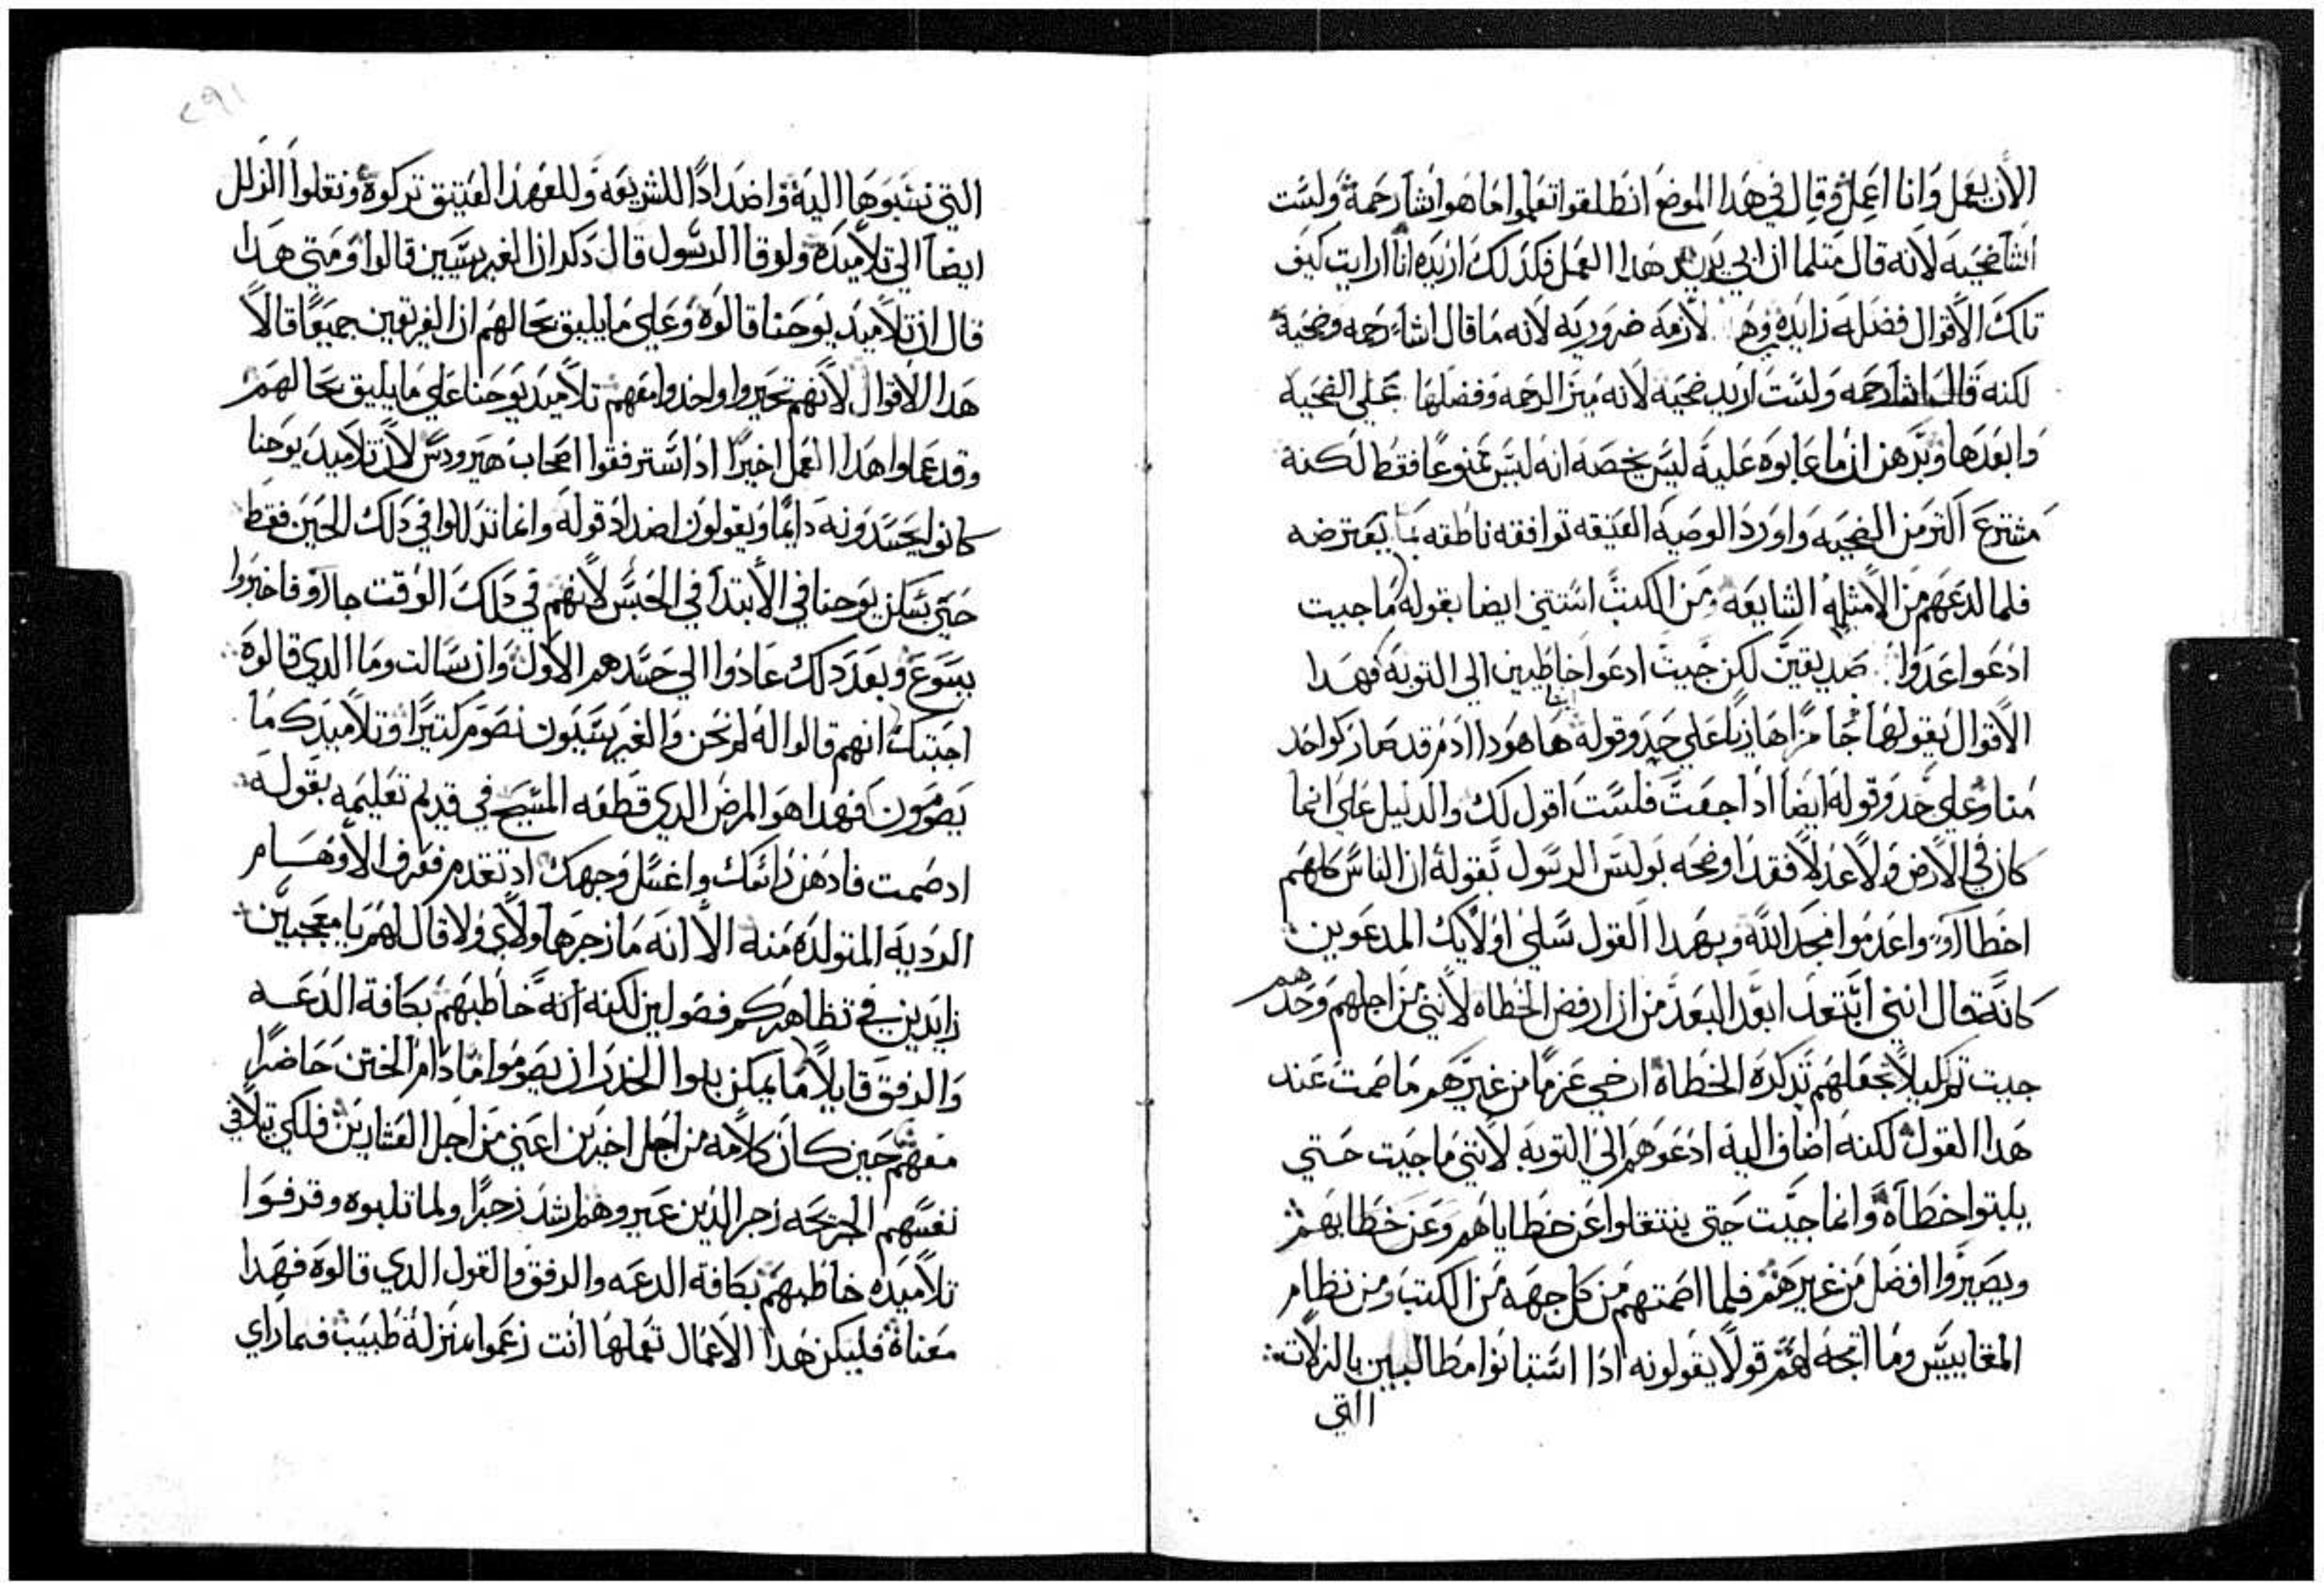 الان يعمل وانا اعمل وقال في هذا الموضع انطلقوا تعلموا ما هو انشا رحمة ولست
انشا ضحيه لانه قال مثلما ان ابي يريد هدا العمل فكدلك اريده انا ارايت كيف
تلك الاقوال فضله زايده وهي لازمه ضروريه لانه ما قال اشا رحمه وضحية
لكنه قال اشا رحمه ولست اريد ضحيه لانه ميز الرحمه وفضلها علي الضحيه
وابعدها وبرهن ان ما عابوه عليه ليس يخصه انه ليس ممنوعا فقط لكنه
مشترع اكثر من الضحيه واورد الوصيه العتيقه توافقه ناطقه بما يفترضه
فلما لدعهم من الامثله الشايعه ومن الكتب استتني ايضا بقوله ما جيت
ادعوا عدوا صديقين لكن جيت ادعوا خاطيين الي التوبه فهدا
الاقوال يقولها جا مزا هازيا علي حد وقوله ها هودا ادم قد صار كواحد
منا وعلي حد وقوله ايضا ادا جعت فلست اقول لك والدليل علي انما
كان في الارض ولا عدلا فقد اوضحه بولس الرسول بقوله ان الناس كلهم
اخطاوا واعدموا مجد الله وبهدا القول سلي اولايك المدعوين
كانه قال انني ابتعد ابعد البعد من ان ارفض الخطاه لانني من اجلهم وحدهم
جيت تم ليلا يجعلهم تدكره الخطاة ارخي عزما من غيرهم ما صمت عند
هدا القول لكنه اضاف اليه ادعوهم الي التوبه لانني ما جيت حتي
يلبتوا خطاة وانما جيت حتي ينتقلوا عن خطاياهم وعن خطايهم
ويصيروا افضل من غيرهم فلما اصمتهم من كل جهه من الكتب ومن نظام
المغاييس وما اتجه لهم قولا يقولونه ادا استبانوا مطالبين بالزلات
التي
٢٩١
التي نسبوها اليه واضدادا للشريعه وللعهد العتيق تركوه ونقلوا الزلل
ايضا الي تلاميده ولوقا الرسول قال دكر ان الفريسيين قالوا ومتي هدا
قال ان تلاميد يوحنا قالوه وعلي ما يليق بحالهم ان الفريقين جميعا قالا
هدا الاقوال لانهم تحيروا واخدوا معهم تلاميد يوحنا علي ما يليق بحالهم
وقد عملوا هدا العمل اخيرا اد استرفقوا اصحاب هيرودس لان تلاميد يوحنا
كانوا يحسدونه دايما ويقولون اضداد قوله وانما تدللوا في دلك الحين فقط
حتي سكن يوحنا في الابتدا في الحبس لانهم في دلك الوقت جاوا فاخبروا
يسوع وبعد دلك عادوا الي حسدهم الاول وان سالت وما الدي قالوه
اجبتك انهم قالوا له لم نحن والفريسيون نصوم كتيرا وتلاميدك ما
يصومون فهدا هو المرض الدي قطعه المسيح في قديم تعليمه بقوله
اد صمت فادهن راسك واغسل وجهك اد تقدم فعرف الاوهام
الرديه المتولده منه الا انه ما زجرها ولا قال لهم يا معجبين
زايدين في تظاهركم فضولين لكنه انه خاطبهم بكافة الدعه
والرفق قايلا ما يمكن بنوا الخدر ان يصوموا ما دام الختن حاضرا
معهم حين كان كلامه من اجل اخرين اعني من اجل العشارين فلكي يتلافي
نفسهم الجريحه زجر الدين عيروهم اشد زجرا ولما تلبوه وقرفوا
تلاميده خاطبهم بكافة الدعه والرفق والقول الدي قالوه فهدا
معناه فليكن هدا الاعمال تعملها انت زعموا بمنزلة طبيب فما راي